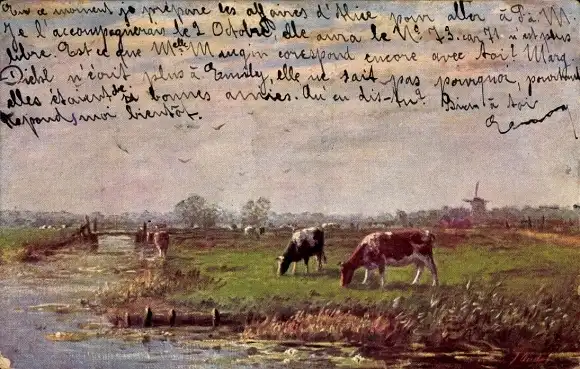 En ce moment je prépare les affaires d'Alice pour aller à P. à M.
Je l'accompagnerai le 2 Octobre, elle aura le No 73. car 71 n'est plus
libre. Est ce que Melle Maugin corespond encore avec toi? Marg.
Diehl n'écrit plus à Emily, elle ne sait pas pourquoi, pourtant
elles étaient de si bonnes amies. Qu'en dis-tu? Bien à toi
Réponds moi bientôt.